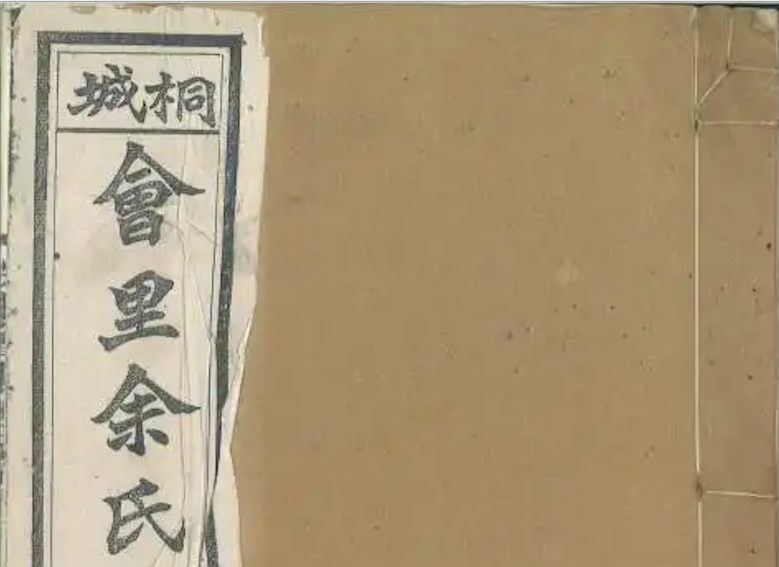 桐城
會里余氏